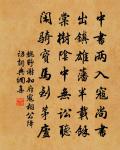 中書兩入寇尚書
出鎮雄藩半載餘
棠樹陰中無訟聽
閑騎寶馬到茅廬
魏野謝知府寇相公降
訪詞典網集